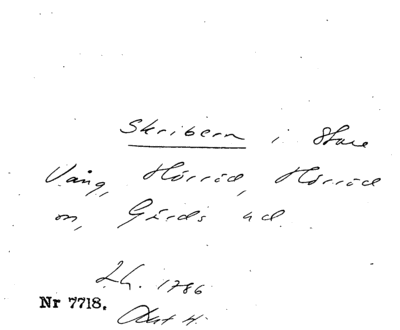 Skribern i Stora
Vång, Hörröd, Hörröd
sn, Gärds hd.
1786
Nr 7718.